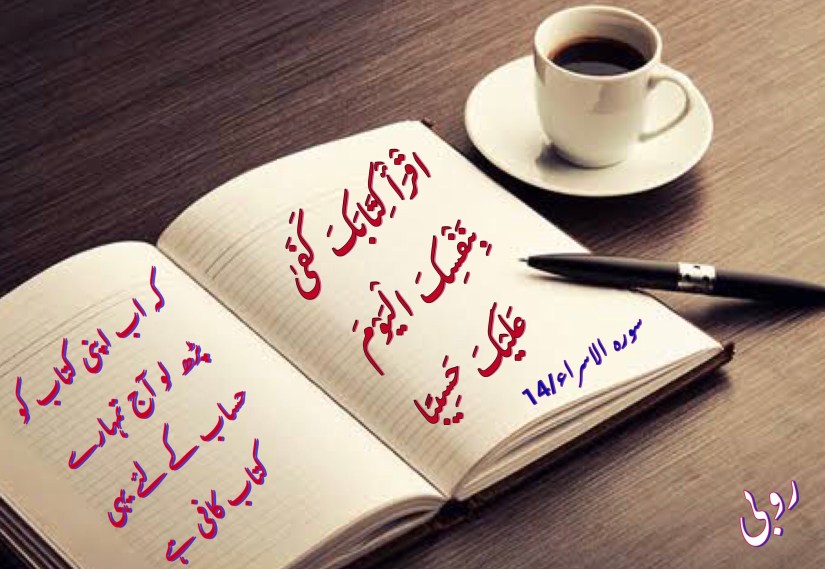 اقْرَأْ كِتَابَكَ كَفَىٰ
بِنَفْسِكَ الْيَوْمَ
عَلَيْكَ حَسِيبًا
سورہ الاسراء/14
کہ اب اپنی کتاب کو
پڑھ لو آج تمہارے
حساب کے لئے یہی
کتاب کافی ہے
روبی